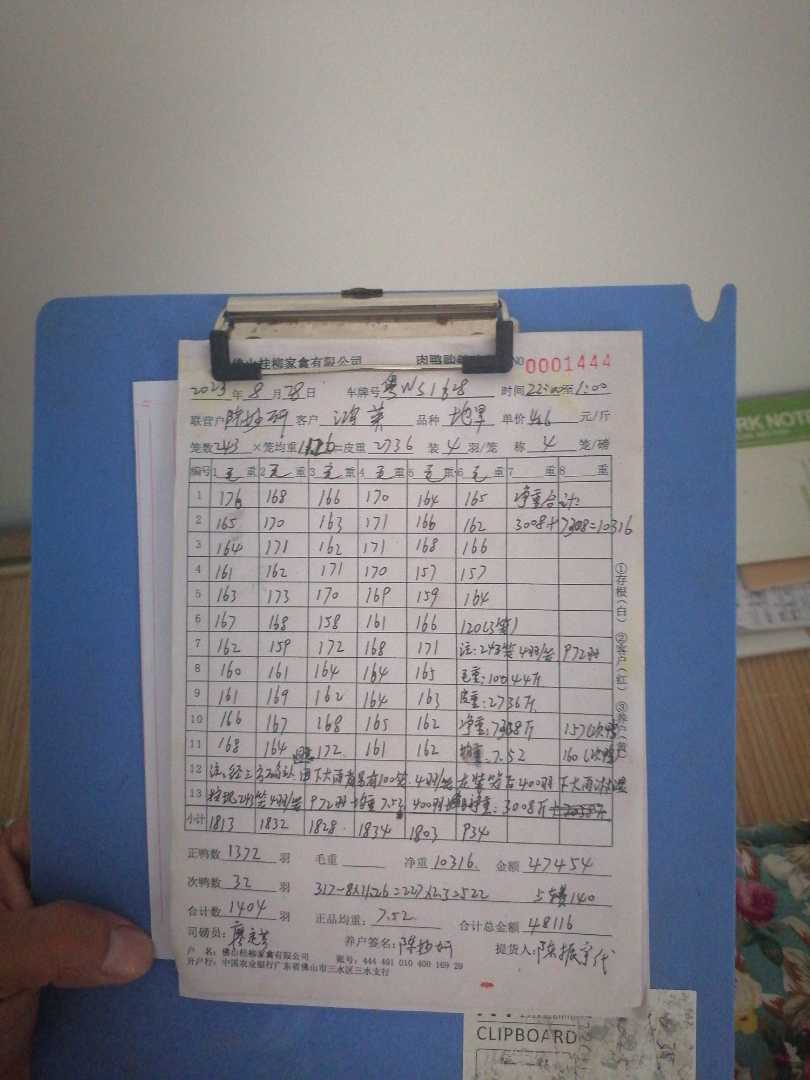 佛山桂柳家禽有限公司 肉鸭 NO 0001444
2023年8月28日 车牌号粤WS1628 时间22:00至1:00
联营户 客户 鸿英 品种 单价4.6元/斤
笼数243×笼均重11.26=皮重2736 装4羽/笼 称4笼/磅
编号 1毛重 2毛重 3毛重 4毛重 5毛重 6毛重 7重 8重
1 176 168 166 170 164 165 净重合计:
2 165 170 163 171 166 162 3008+7308=10316
3 164 171 162 171 168 166
4 161 162 171 170 157 157
5 163 173 170 169 159 164
6 167 168 158 161 166 120(3笼)
7 162 159 172 168 171 注:243笼4羽/笼 972羽
8 160 161 164 164 165 毛重:10044斤
9 161 169 162 164 163 皮重:2736斤
10 166 167 168 165 162 净重:7308斤 157(次鸭
11 168 164 172 161 162 均重:7.52 160(次鸭
12 注:经三方确认 下大雨 有100笼 4羽/笼 400羽 下大雨
13 按现243笼4羽/笼 972羽 均重7.52 400羽 净重:3008斤
小计 1813 1832 1828 1834 1803 934
正鸭数1372羽 毛重 净重10316 金额47454
次鸭数32羽 317-8×11.26=227×2.3=522 140
合计数1404羽 正品均重:7.52 合计总金额48116
司磅员: 养户签名: 提货人:陈振宇代
户 名:佛山桂柳家禽有限公司 账号:444 491 010 400 169 29
开户行:中国农业银行广东省佛山市三水区三水支行
①存根(白) ②客户(红) ③养户(黄)
RK NOTE
CLIPBOARD